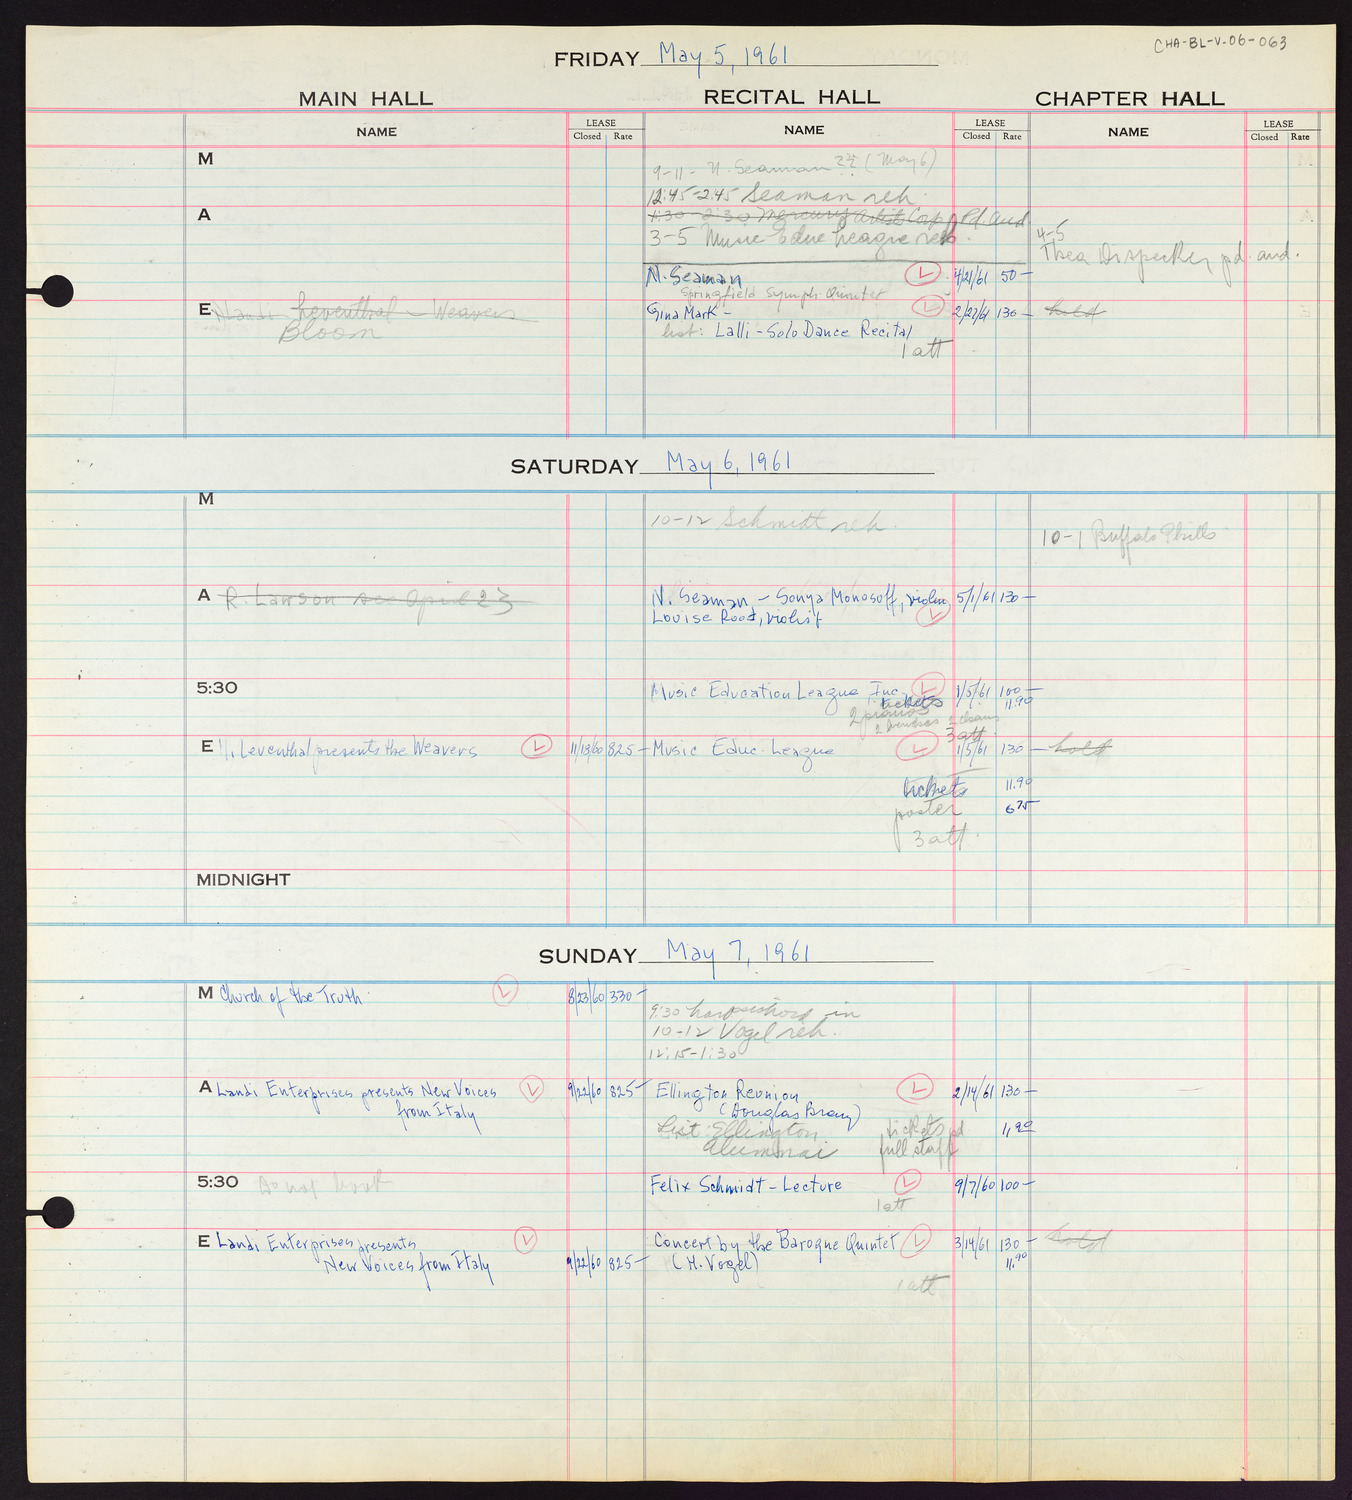 CHA-BL-V-06-063
FRIDAY May 5, 1961
MAIN HALL RECITAL HALL CHAPTER HALL
NAME LEASE Closed Rate NAME LEASE Closed Rate NAME LEASE Closed Rate
M
9-11- N. Seaman ?? (May 6)
12:45-2:45 Seaman reh.
A
1:30-2:30 Mercury Artist Corp pd. aud
3-5 Music Educ League reh.
4-5
Thea Dispecker pd. aud.
N. Seaman 4/21/61 50-
Springfield Symph. Quintet
E Leventhal - Weavers
Bloom
Gina Mark - 2/27/61 130- hold
list: Lalli - Solo Dance Recital
1 att
SATURDAY May 6, 1961
M
10-12 Schmidt reh.
10-1 Buffalo Phills
A R. Lawson see April 23
N. Seaman - Sonya Monosoff, violin 5/1/61 130-
Louise Rood, violist
5:30
Music Education League Inc. 1/5/61 100-
tickets 11.90
2 pianos
3 att.
E Leventhal presents the Weavers 11/13/60 825-
Music Educ. League 1/5/61 130- hold
tickets 11.90
poster 6.75
3 att.
MIDNIGHT
SUNDAY May 7, 1961
M Church of the Truth 8/23/60 330-
9:30 harpsichord in
10-12 Vogel reh.
12:15-1:30
A Landi Enterprises presents New Voices 9/22/60 825-
from Italy
Ellington Reunion 2/14/61 130-
(Douglas Bray)
List: Ellington tickets pd 11.90
Alumnai full staff
5:30 Do not book
Felix Schmidt - Lecture 9/7/60 100-
1 att
E Landi Enterprises presents
New Voices from Italy 9/22/60 825-
Concert by the Baroque Quintet 3/14/61 130- hold
(H. Vogel) 11.90
1 att